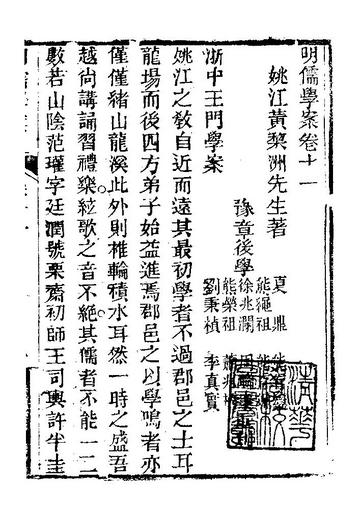 明儒學案卷十一
姚江黃棃洲先生著
豫章後學
夏鼎
熊繩祖
徐兆瀾
熊榮祖
劉秉楨
李真實
浙中王門學案
姚江之敎自近而遠其最初學者不過郡邑之士耳
龍場而後四方弟子始益進焉郡邑之以學鳴者亦
僅僅緒山龍溪此外則椎輪積水耳然一時之盛吾
越尚講誦習禮樂絃歌之音不絕其儒者不能一二
數若山陰范瓘字廷潤號栗齋初師王司輿許半圭